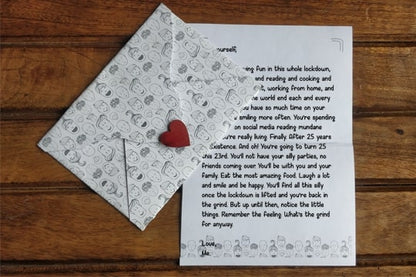 yourself,
ing fun in this whole lockdown,
and reading and cooking and
out, working from home, and
he world end each and every
ou have so much time on your
smiling more often. You're spending
on social media reading mundane
're really living. Finally. After 25 years
existence. And oh! You're going to turn 25
this 23rd. You'll not have your silly parties, no
friends coming over You'll be with you and your
family. Eat the most amazing food. Laugh a lot
and smile and be happy. You'll find all this silly
once the lockdown is lifted and you're back in
the grind. But up until then, notice the little
things. Remember the feeling. What's the grind
for anyway.
Love,
Me